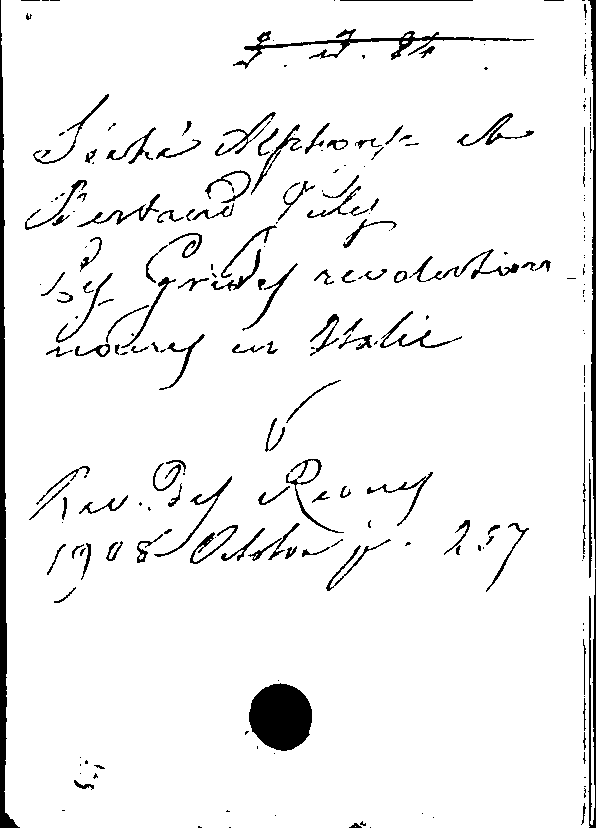 Séché Alphonse et
Bertaud Jules
Les Grèves revolution-
naires en Italie
Rev. Des Revues
1908 Octobre p. 257